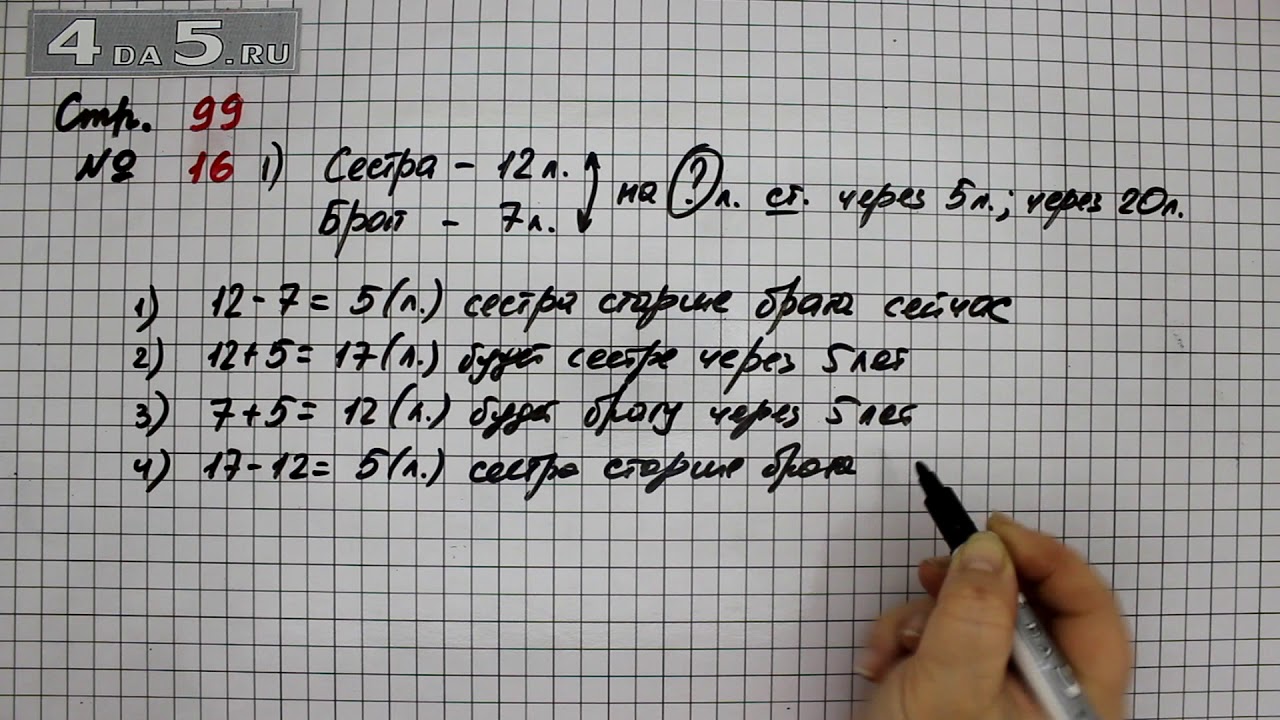 4DA5.RU
Стр. 99
№ 16 1) Сестра - 12 л.
Брат - 7 л.
на ? л. ст. через 5 л.; через 20 л.
1) 12 - 7 = 5 (л.) сестра старше брата сейчас
2) 12 + 5 = 17 (л.) будет сестре через 5 лет
3) 7 + 5 = 12 (л.) будет брату через 5 лет
4) 17 - 12 = 5 (л.) сестра старше брата